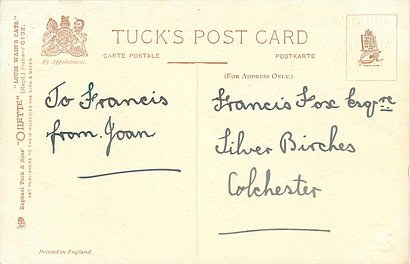 TUCK'S POST CARD
By Appointment.
CARTE POSTALE
POSTKARTE
(FOR ADDRESS ONLY.)
To Francis
from Joan
Francis Fox Esqre
Silver Birches
Colchester
Raphael Tuck & Sons' "OILETTE" "LOUIS WAIN'S CATS"
[Regd.] Postcard
ART PUBLISHERS TO THEIR MAJESTIES THE KING & QUEEN.
Printed in England.